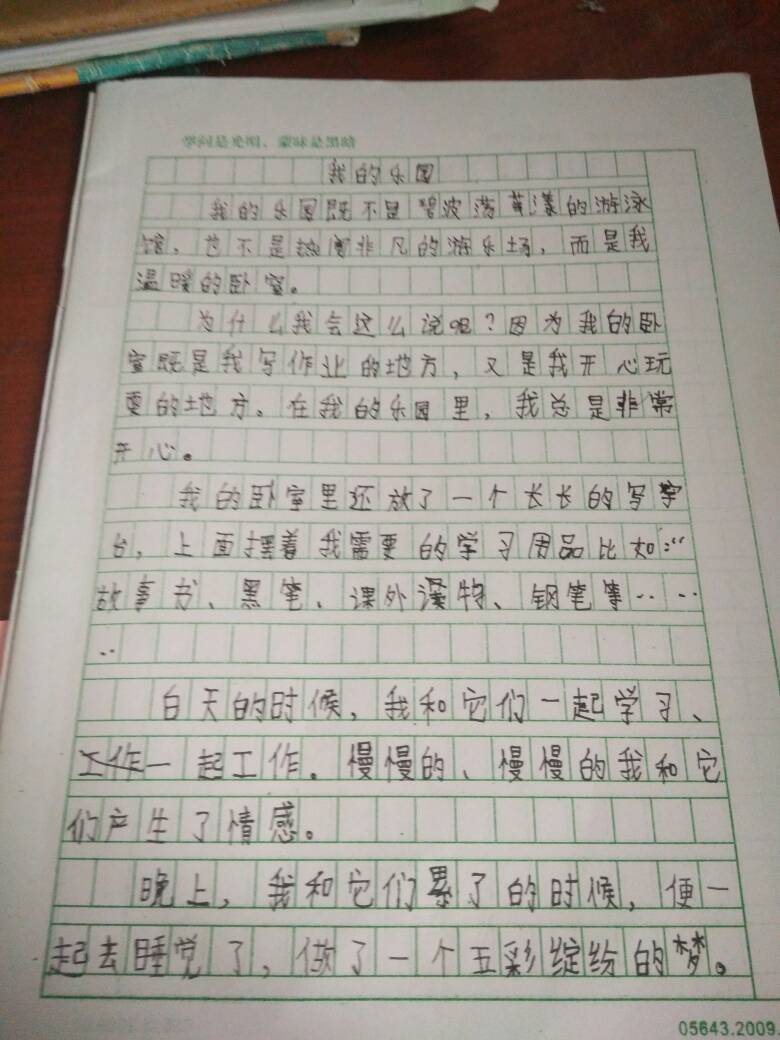 学问是光明、蒙昧是黑暗
我的乐园
我的乐园既不是碧波荡漾的游泳
馆，也不是热闹非凡的游乐场，而是我
温暖的卧室。
为什么我会这么说呢？因为我的卧
室既是我写作业的地方，又是我开心玩
耍的地方。在我的乐园里，我总是非常
开心。
我的卧室里还放了一个长长的写字
台，上面摆着我需要的学习用品比如：“
故事书、黑笔、课外读物、钢笔等……
‥
白天的时候，我和它们一起学习、
工作一起工作。慢慢的、慢慢的我和它
们产生了情感。
晚上，我和它们累了的时候，便一
起去睡觉了，做了一个五彩缤纷的梦。
05643.2009.